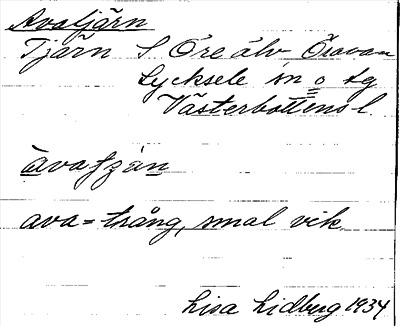 Avatjärn
Tjärn S Öre älv Öravan
Lycksele sn o lg
Västerbottens l.
ava
ava = trång, smal vik
Lisa Lidberg 1934